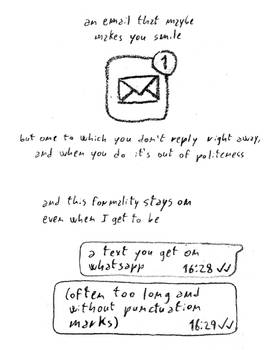 an email that maybe
makes you smile
1
but one to which you don't reply right away,
and when you do it's out of politeness
and this formality stays on
even when I get to be
a text you get on
whatsapp 16:28 ✓✓
(often too long and
without punctuation
marks) 16:29 ✓✓